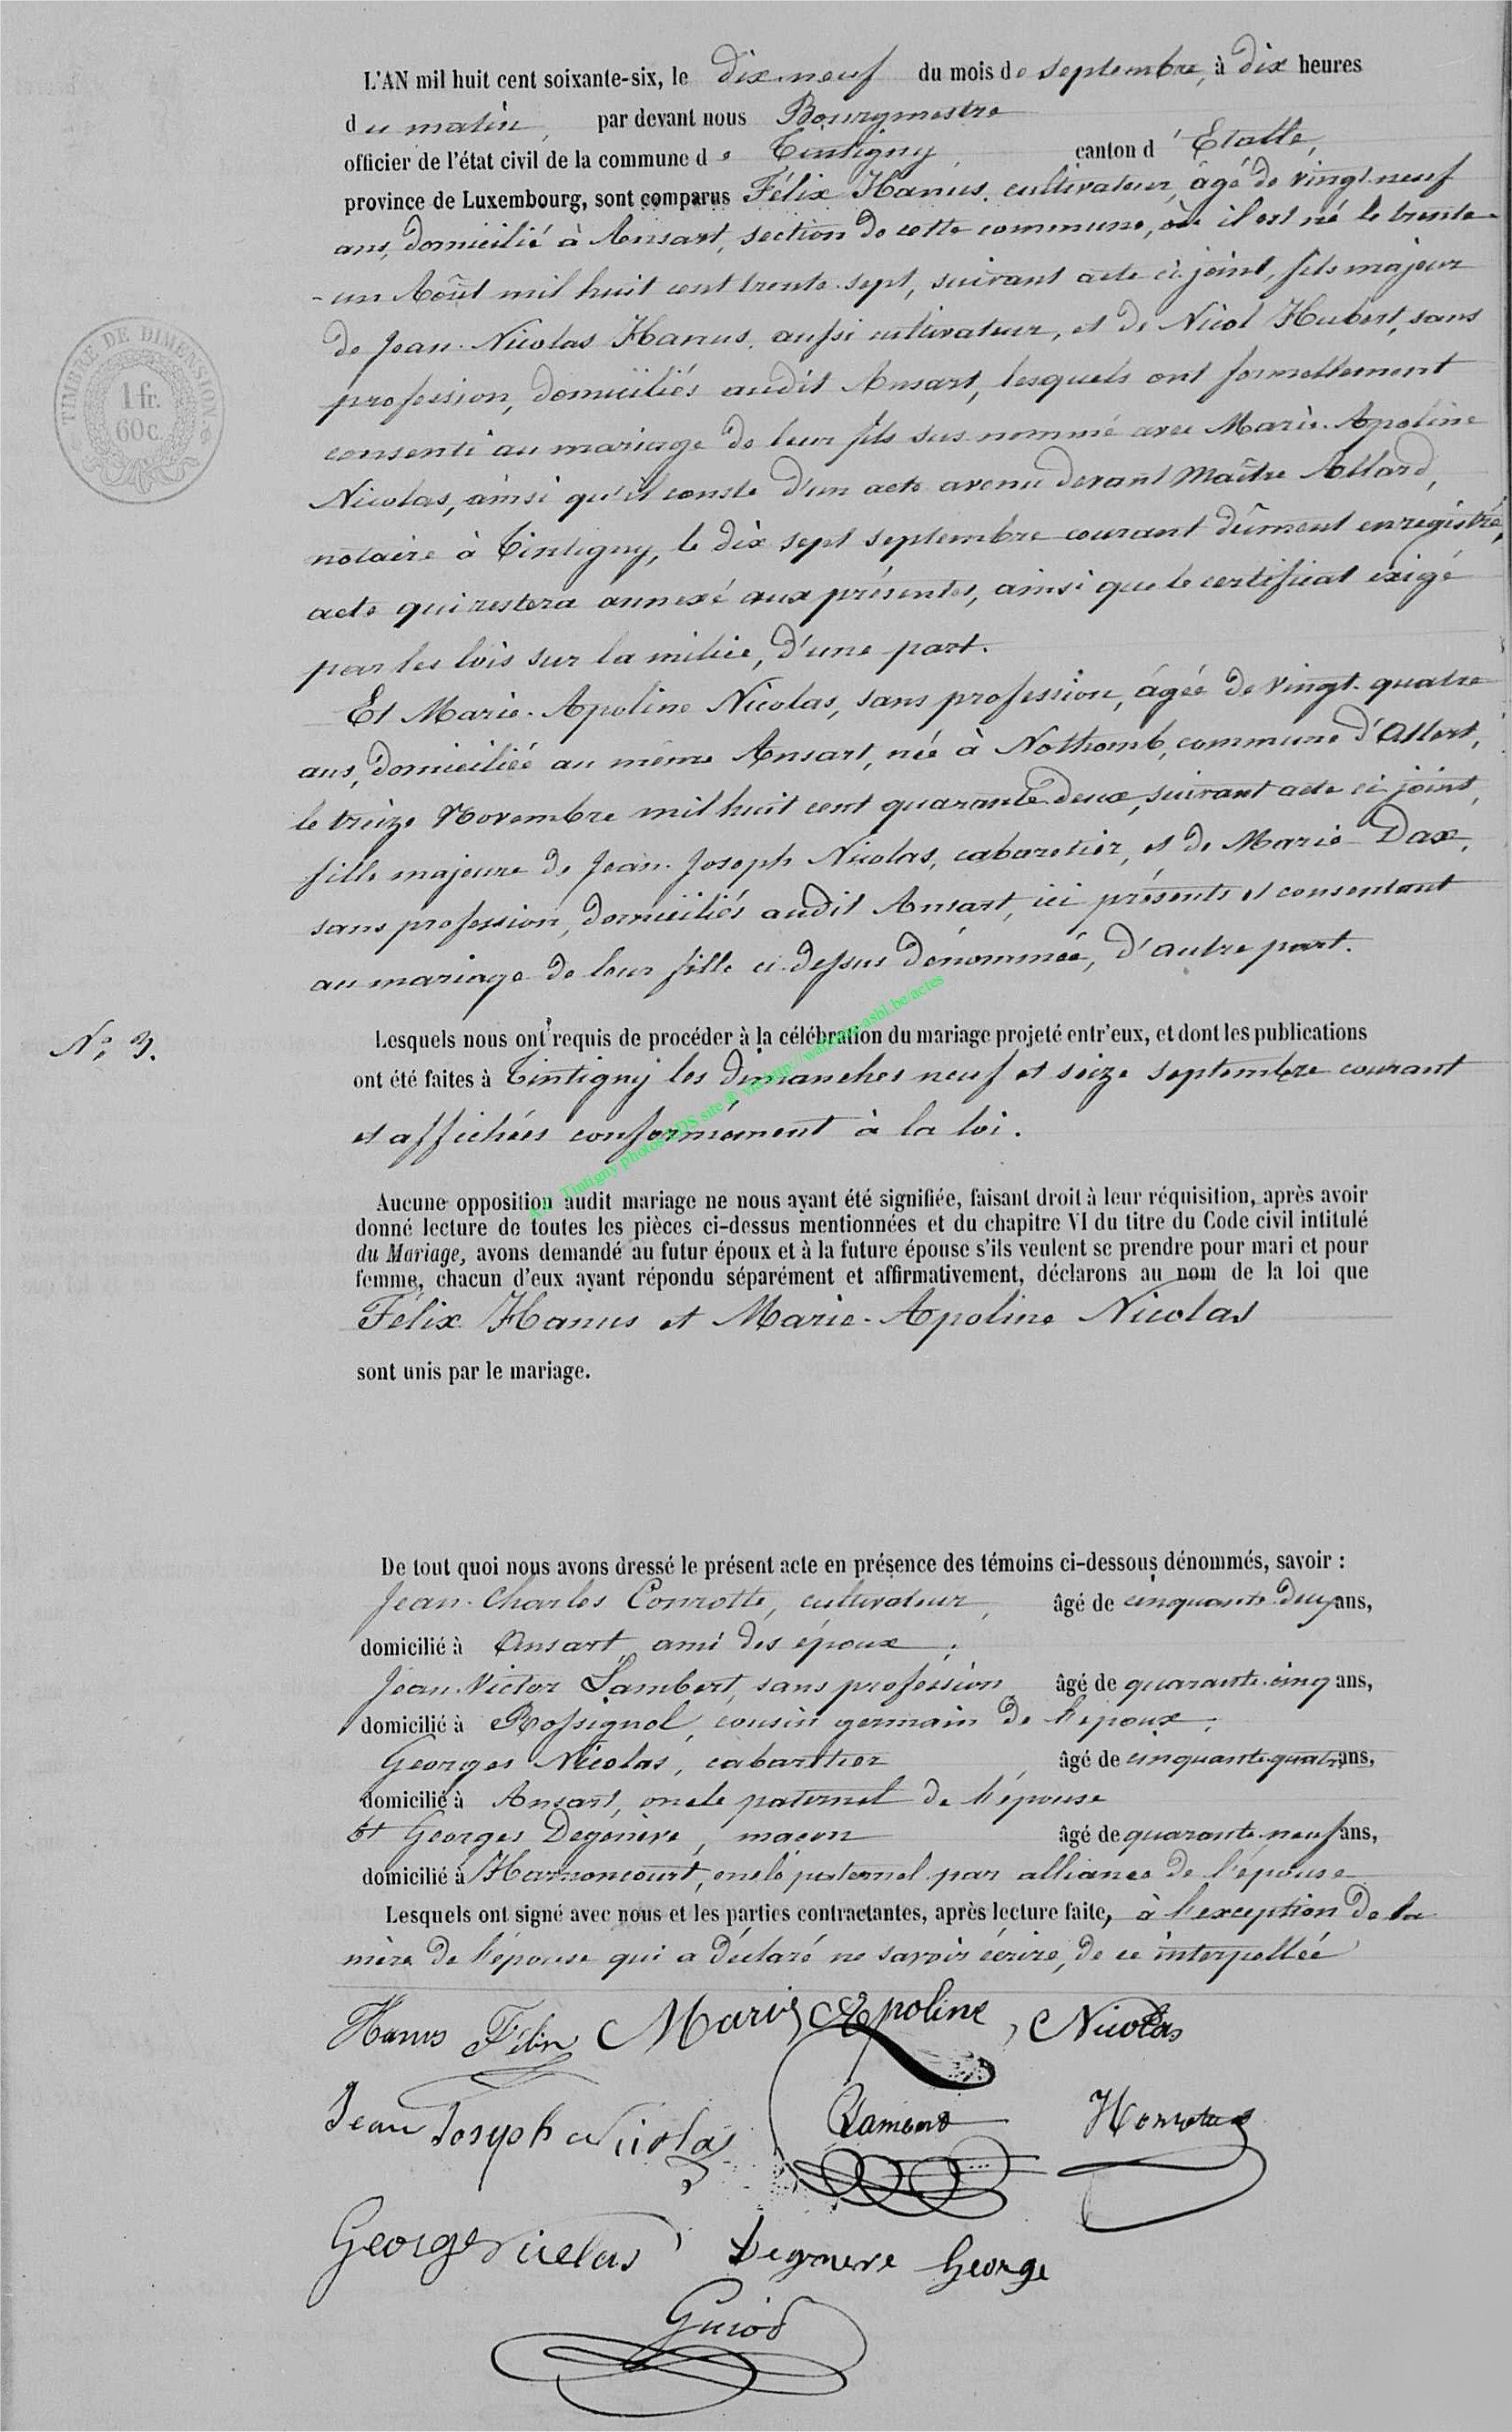 L'AN mil huit cent soixante-six, le dix-neuf du mois de septembre, à dix heures
du matin, par devant nous Bourgmestre
officier de l'état civil de la commune de Tintigny, canton d'Etalle,
province de Luxembourg, sont comparus Félix Hanus, cultivateur, âgé de vingt-neuf
ans, domicilié à Ansart, section de cette commune, où il est né le trente-
-un Août mil huit cent trente-sept, suivant acte ci-joint, fils majeur
de Jean-Nicolas Hanus, aussi cultivateur, et de Nicol Hubert, sans
profession, domiciliés audit Ansart, lesquels ont formellement
consenti au mariage de leur fils sus-nommé avec Marie-Apoline
Nicolas, ainsi qu'il conste d'un acte avenu devant Maître Allard,
notaire à Tintigny, le dix sept septembre courant dûment enregistré,
acte qui restera annexé aux présentes, ainsi que le certificat exigé
par les lois sur la milice, d'une part.
Et Marie-Apoline Nicolas, sans profession, âgée de vingt-quatre
ans, domiciliée au même Ansart, née à Nothomb, commune d'Attert,
le treize Novembre mil huit cent quarante-deux, suivant acte ci-joint,
fille majeure de Jean-Joseph Nicolas, cabaretier, et de Marie Dax,
sans profession, domiciliés audit Ansart, ici présents et consentant
au mariage de leur fille ci-dessus dénommée, d'autre part.
N° 3.
Lesquels nous ont requis de procéder à la célébration du mariage projeté entr'eux, et dont les publications
ont été faites à Tintigny les dimanches neuf et seize septembre courant
et affichées conformément à la loi.
Aucune opposition audit mariage ne nous ayant été signifiée, faisant droit à leur réquisition, après avoir
donné lecture de toutes les pièces ci-dessus mentionnées et du chapitre VI du titre du Code civil intitulé
du Mariage, avons demandé au futur époux et à la future épouse s'ils veulent se prendre pour mari et pour
femme, chacun d'eux ayant répondu séparément et affirmativement, déclarons au nom de la loi que
Félix Hanus et Marie-Apoline Nicolas
sont unis par le mariage.
De tout quoi nous avons dressé le présent acte en présence des témoins ci-dessous dénommés, savoir :
Jean-Charles Conrotte, cultivateur, âgé de cinquante-deux ans,
domicilié à Ansart, ami des époux,
Jean-Victor Lambert, sans profession âgé de quarante-cinq ans,
domicilié à Rossignol, cousin germain de l'époux,
Georges Nicolas, cabaretier, âgé de cinquante-quatre ans,
domicilié à Ansart, oncle paternel de l'épouse
et Georges Degénève, maçon âgé de quarante-neuf ans,
domicilié à Harnoncourt, oncle paternel par alliance de l'épouse
Lesquels ont signé avec nous et les parties contractantes, après lecture faite, à l'exception de la
mère de l'épouse qui a déclaré ne savoir écrire, de ce interpellée
Hanus Félix Marie Apoline, Nicolas
Jean Joseph Nicolas Lambert
George Nicolas Degeneve George
TIMBRE DE DIMENSION
1 fr.
60 c.